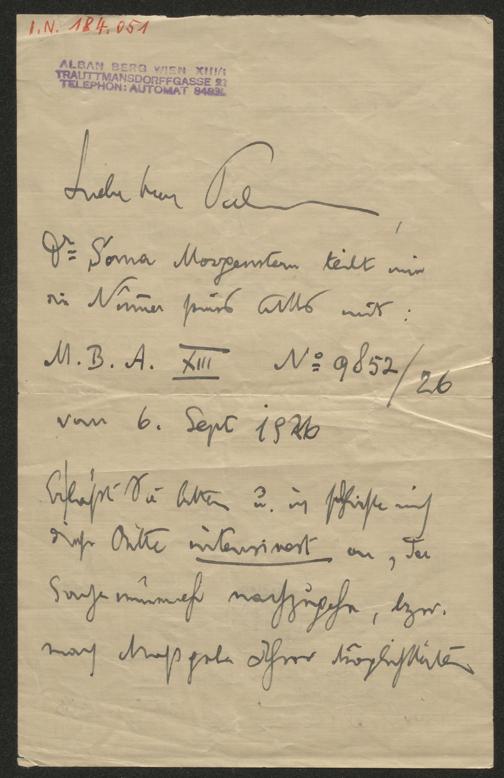 I.N. 184.051
ALBAN BERG WIEN XIII/1
TRAUTTMANSDORFFGASSE 27
TELEPHON: AUTOMAT 84831
Lieber Herr
Dr Soma Morgenstern teilt mir
die Nummer seines Akts mit:
M.B.A. XIII No 9852/26
vom 6. Sept 1926
Sie bitten u. ich schließe mich
dieser Bitte intensivst an, der
Sache nunmehr nachzugehn, bzw.
nach Maßgabe Ihrer Möglichkeiten